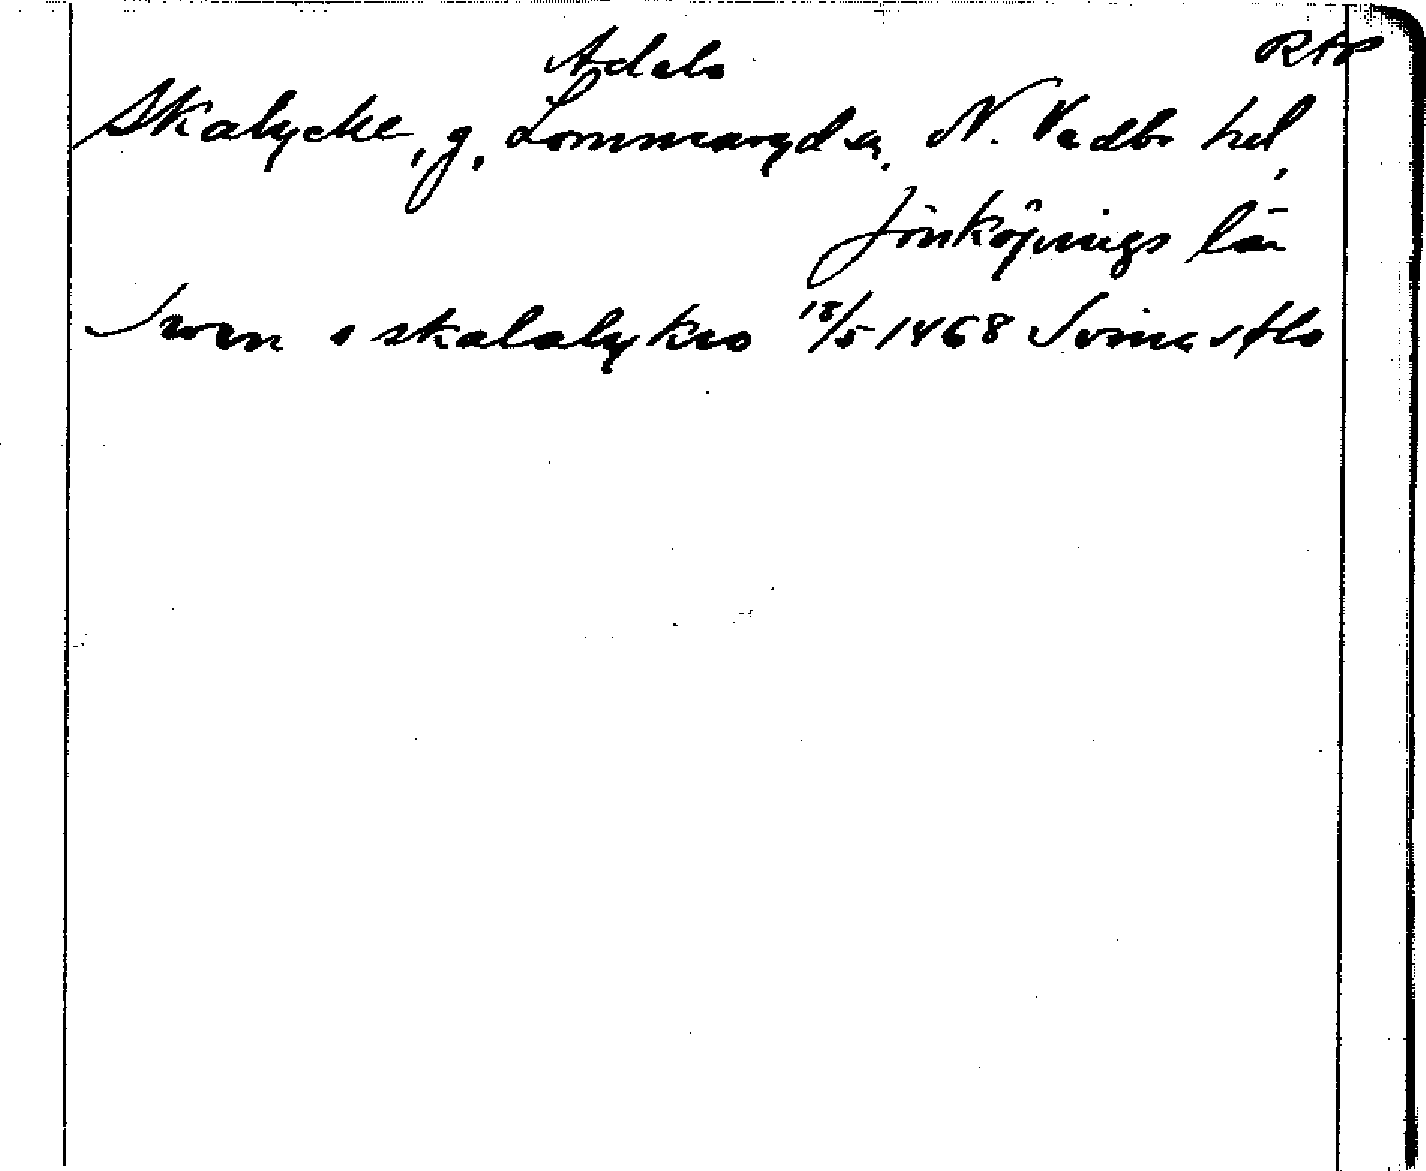 Adels RAP
Skalycke, g, Lommaryd sn, N. Vedbo hd,
Jönköpings län
Swen i skalalykio 18/5 1468